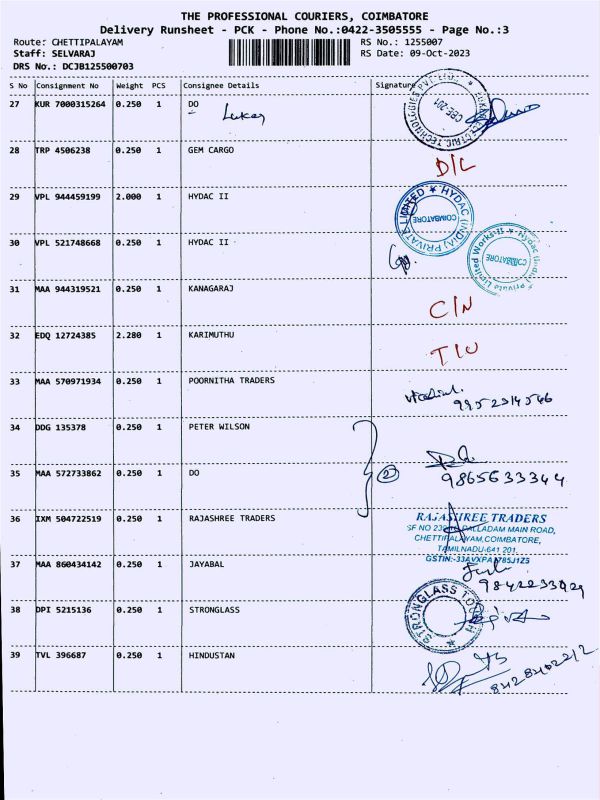 THE PROFESSIONAL COURIERS, COIMBATORE
Delivery Runsheet - PCK - Phone No.:0422-3505555 - Page No.:3
Route: CHETTIPALAYAM RS No.: 1255007
Staff: SELVARAJ RS Date: 09-Oct-2023
DRS No.: DCJB125500703
S No Consignment No Weight PCS Consignee Details Signature
27 KUR 7000315264 0.250 1 DO
Lukas
CBE-201
28 TRP 4506238 0.250 1 GEM CARGO
D/L
29 VPL 944459199 2.000 1 HYDAC II
HYDAC (INDIA) PRIVATE LIMITED
COIMBATORE
30 VPL 521748668 0.250 1 HYDAC II
Hydac (India) Private Limited Works-II
COIMBATORE
31 MAA 944319521 0.250 1 KANAGARAJ
C/N
32 EDQ 12724385 2.280 1 KARIMUTHU
33 MAA 570971934 0.250 1 POORNITHA TRADERS
9952314546
34 DDG 135378 0.250 1 PETER WILSON
2
35 MAA 572733862 0.250 1 DO
9865633344
36 IXM 504722519 0.250 1 RAJASHREE TRADERS
RAJASHREE TRADERS
SF NO PALLADAM MAIN ROAD,
CHETTIPALAYAM, COIMBATORE,
TAMILNADU-641 201.
37 MAA 860434142 0.250 1 JAYABAL
38 DPI 5215136 0.250 1 STRONGLASS
STRONGLASS TOUGH
39 TVL 396687 0.250 1 HINDUSTAN